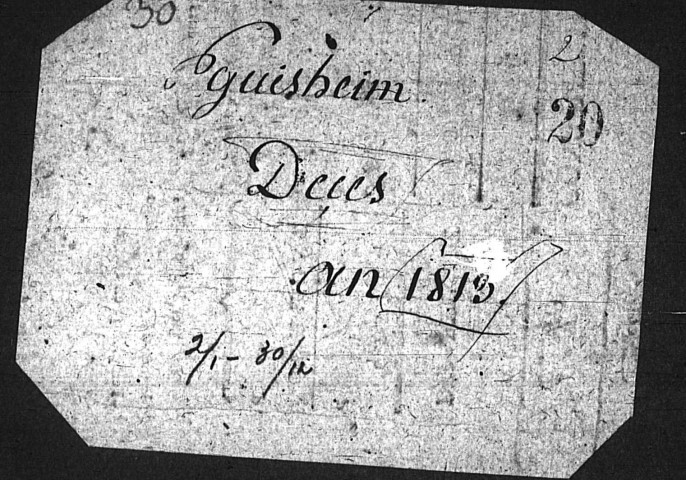 30
2
Eguisheim
20
Décès
an 1813.
2/1 - 30/12